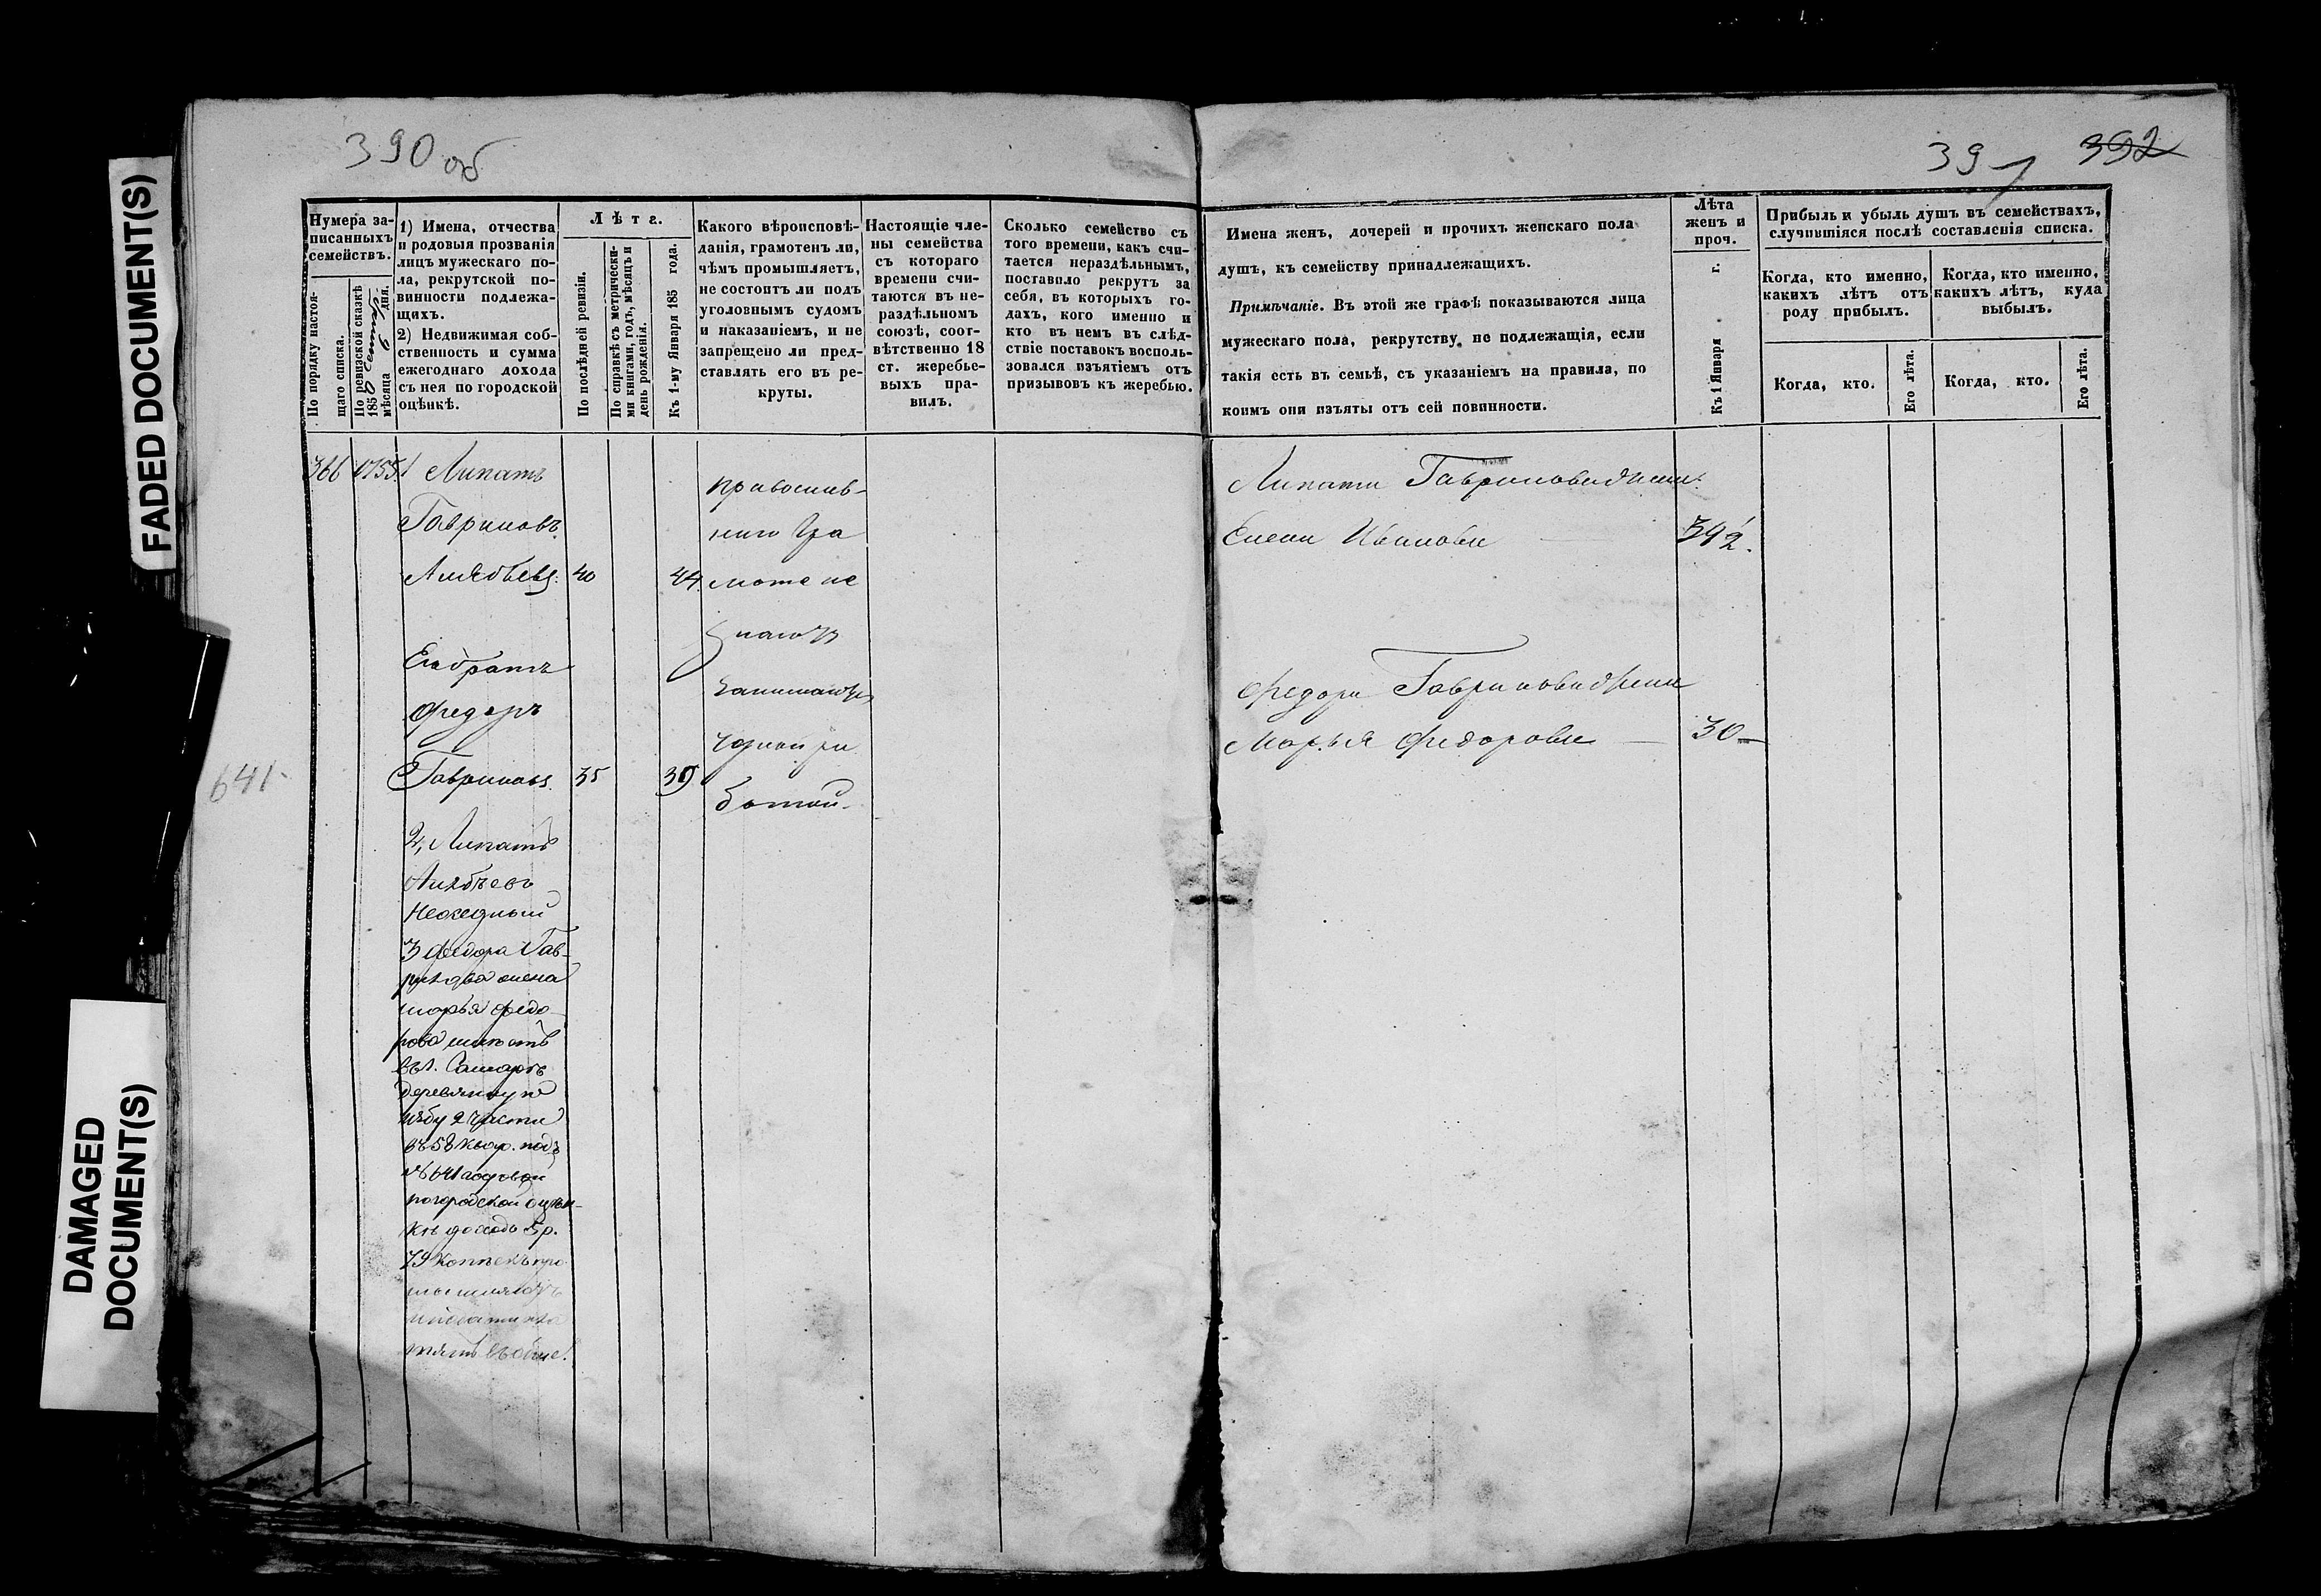 FADED DOCUMENT(S)
DAMAGED
DOCUMENT(S)
390 об
641
Нумера за-
писанныхъ
семействъ.
По порядку настоя-
щаго списка.
По ревизской сказкѣ
1850
мѣсяца 9 дня.
1) Имена, отчества
и родовыя прозванія
лицъ мужескаго по-
ла, рекрутской по-
винности подлежа-
щихъ.
2) Недвижимая соб-
ственность и сумма
ежегоднаго дохода
съ нея по городской
оцѣнкѣ.
Лѣта.
По послѣдней ревизіи.
По справкѣ съ метрически-
ми книгами, годъ, мѣсяцъ и
день рожденія.
Къ 1-му Января 185 года.
Какого вѣроисповѣ-
данія, грамотенъ ли,
чѣмъ промышляетъ,
не состоитъ ли подъ
уголовнымъ судомъ
и наказаніемъ, и не
запрещено ли пред-
ставлять его въ ре-
круты.
Настоящіе чле-
ны семейства
съ котораго
времени счи-
таются въ не-
раздѣльномъ
союзѣ, соот-
вѣтственно 18
ст. жеребье-
выхъ пра-
вилъ.
Сколько семейство съ
того времени, какъ счи-
тается нераздѣльнымъ,
поставило рекрутъ за
себя, въ которыхъ го-
дахъ, кого именно и
кто въ немъ въ слѣд-
ствіе поставокъ восполь-
зовался изъятіемъ отъ
призывовъ къ жеребью.
366 1755 1 Липатъ
Гавриловъ
40 44
Его братъ
Федоръ
Гавриловъ 35 39
2, Липатъ
3 Федора Гав-
рилова жена
марья федо
рова
въ г. Самарѣ
деревянную
избу 2 части
въ 58 квар. подъ
№ 641
по городской оцѣн-
кѣ доходъ 5 р.
79 копѣекъ
православ-
наго Гра
моте не
знаютъ
занимаются
черной ра
ботой
391 392
Имена женъ, дочерей и прочихъ женскаго пола
душъ, къ семейству принадлежащихъ.
Примѣчаніе. Въ этой же графѣ показываются лица
мужескаго пола, рекрутству не подлежащія, если
такія есть въ семьѣ, съ указаніемъ на правила, по
коимъ они изъяты отъ сей повинности.
Лѣта
женъ и
проч.
Къ 1 Января г.
Прибыль и убыль душъ въ семействахъ,
случившіяся послѣ составленія списка.
Когда, кто именно,
какихъ лѣтъ отъ
роду прибылъ.
Когда, кто именно,
какихъ лѣтъ, куда
выбылъ.
Когда, кто.
Его лѣта.
Когда, кто.
Его лѣта.
Липата Гаврилова жена
Елена Иванова
Федора Гаврилова жена
Марья Федорова 30